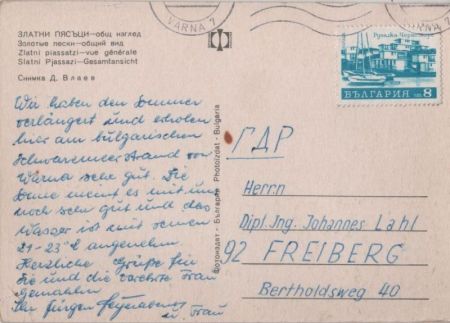 VARNA 1
ЗЛАТНИ ПЯСЪЦИ—общ изглед
Золотые пески—общий вид
Zlatni piassatzi—vue générale
Slatni Pjassazi—Gesamtansicht
Снимка Д. Влаев
Wir haben den Sommer
verlängert und erholen
hier am bulgarischen
Schwarzmeerstrand vor
Warna sehr gut. Die
Sonne meint es mit uns
noch sehr gut und das
Wasser ist mit seinen
21-23° angenehm.
Herzliche Grüße für
Sie und die Frau
Gemahlin
Ihr Jürgen
u. Frau
Фотоиздат - България Photoizdat - Bulgaria
Русалка Черноморс
БЪЛГАРИЯ 8
ГДР
Herrn
Dipl. Jng. Johannes Lahl
92 FREIBERG
Bertholdsweg 40